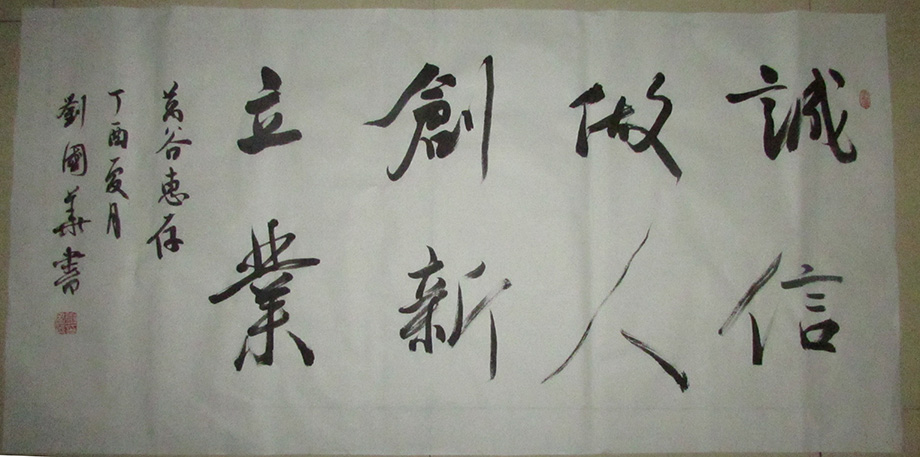 誠信
做人
創新
立業
萬谷惠存
丁酉夏月
劉國華書